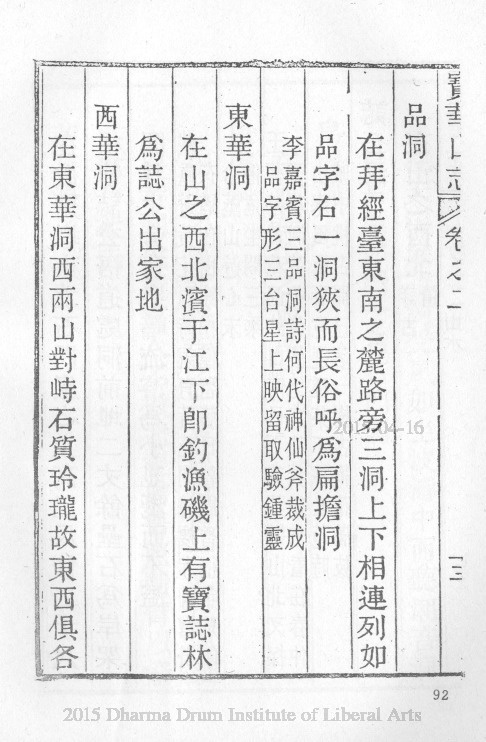 寶華山志
卷之二
品洞
在拜經臺東南之麓路旁三洞上下相連列如
品字右一洞狹而長俗呼爲扁擔洞
李嘉賓三品洞詩何代神仙斧裁成
品字形三台星上映留取驗鍾靈
東華洞
在山之西北濱于江下卽釣漁磯上有寶誌林
爲誌公出家地
西華洞
在東華洞西兩山對峙石質玲瓏故東西俱各
三
92
2015-04-16
2015 Dharma Drum Institute of Liberal Arts